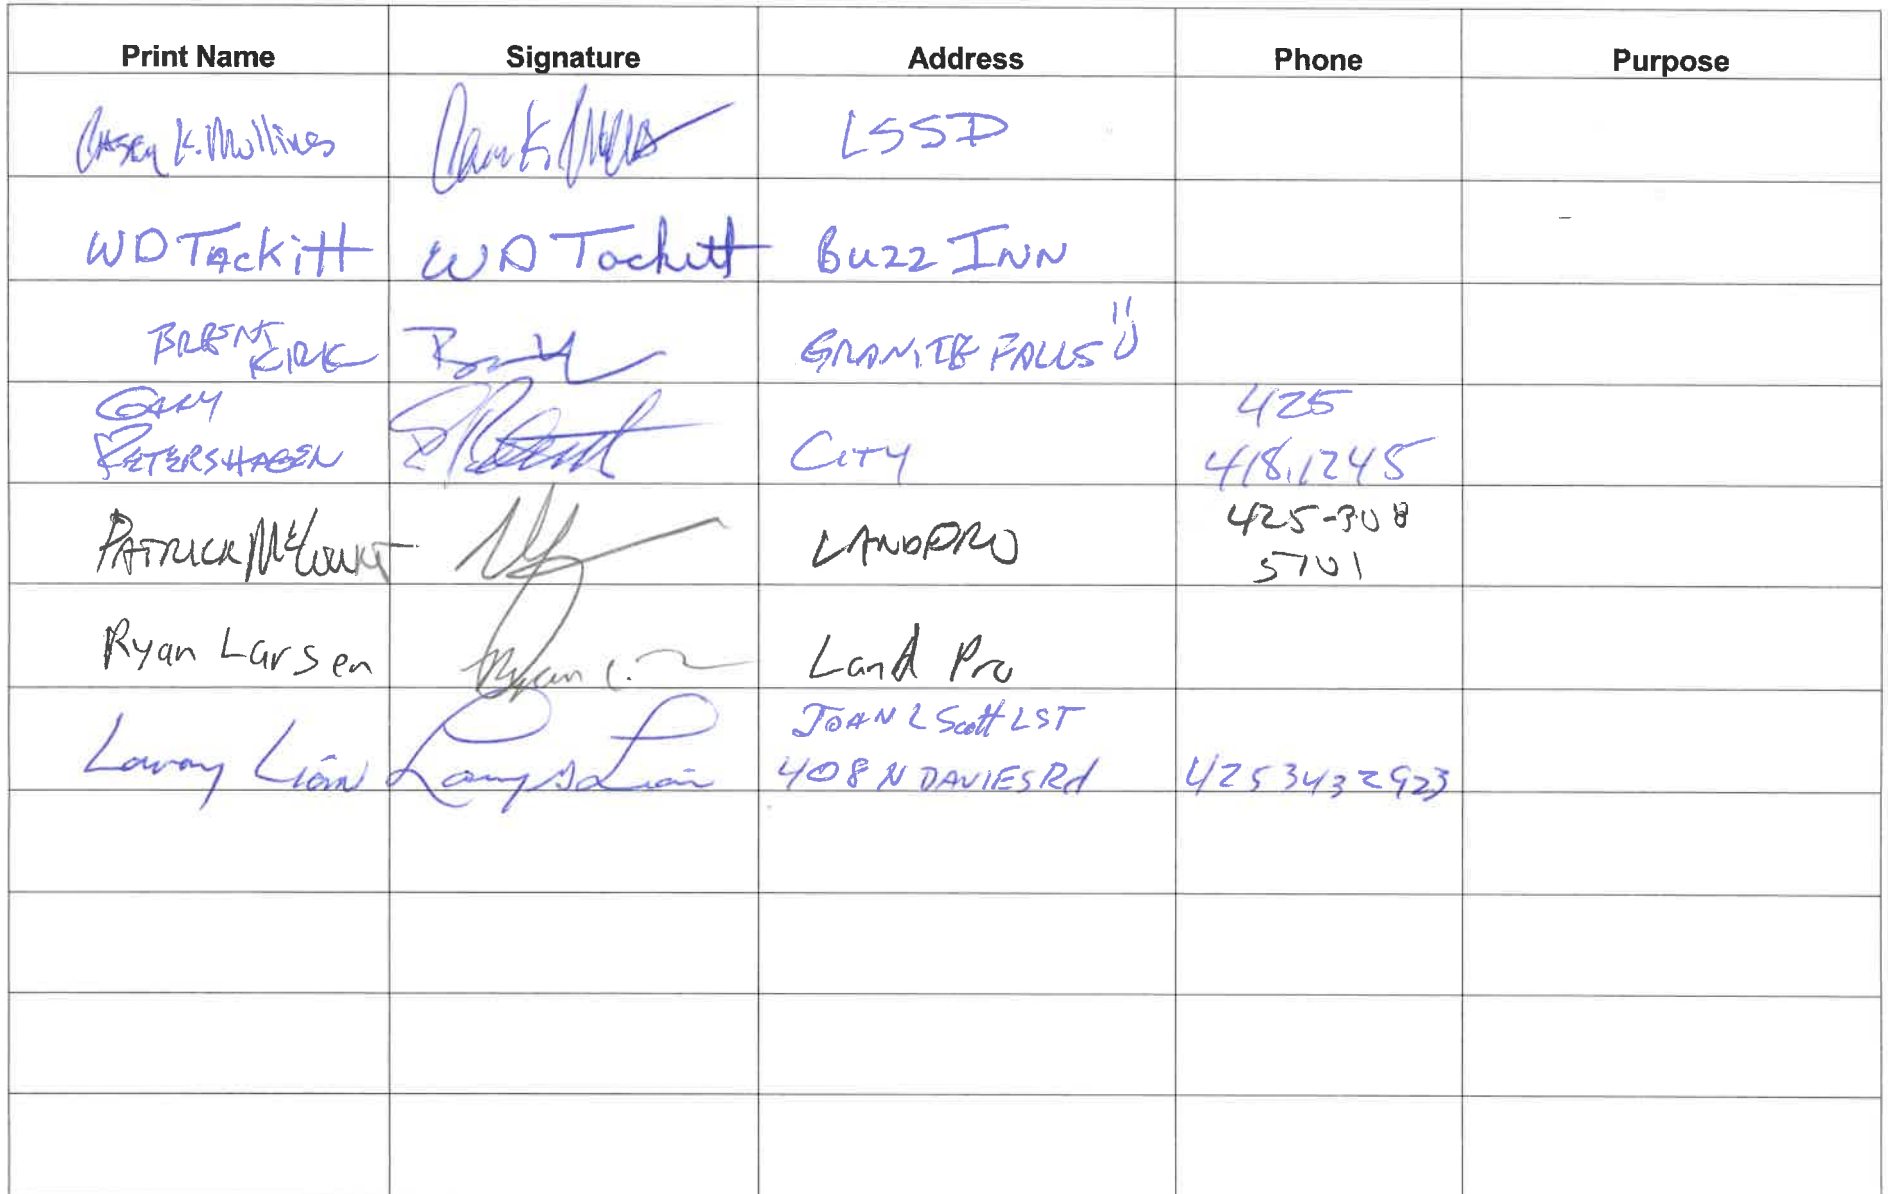 Print Name Signature Address Phone Purpose
Casey K. Mullines LSSD
WD Tackitt WD Tackitt Buzz INN
BRENT
KIRK GRANITE FALLS
GARY
PETERSHAGEN CITY 425
418.1245
PATRICK McCOURT LANDPRO 425-308
5701
Ryan Larsen Land Pro
JOAN L Scott LST
Lian 408 N DAVIES Rd 425 343 2923